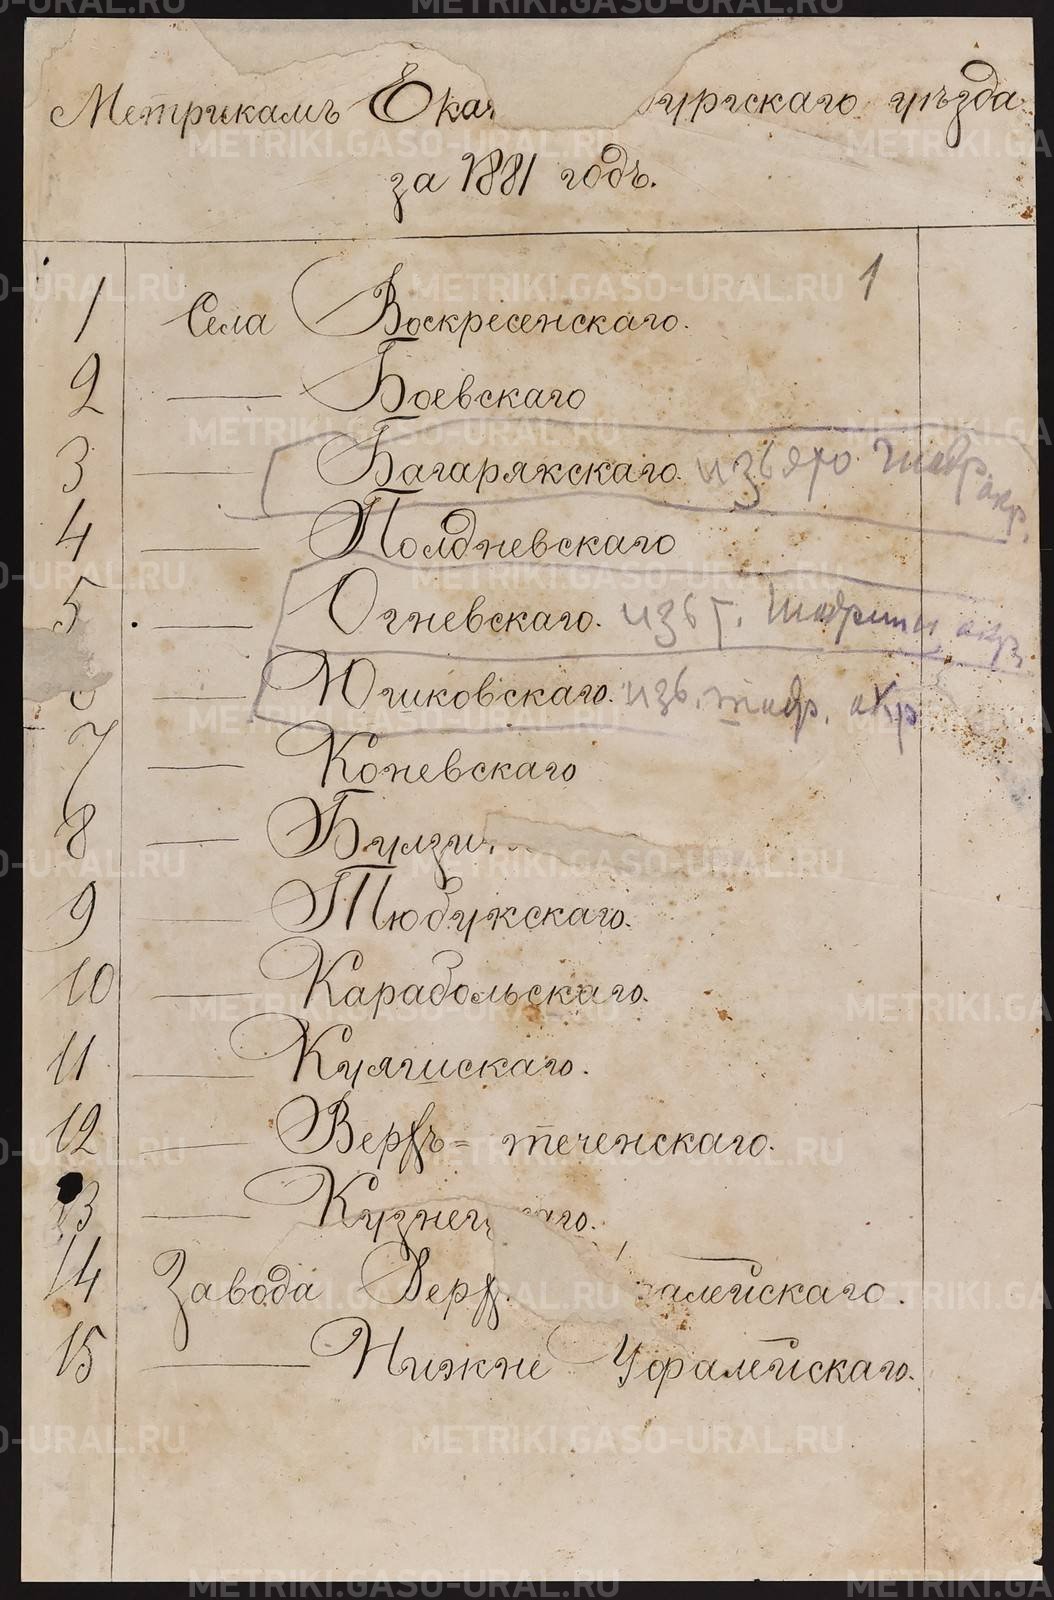 Метрикамъ Ека бургскаго уѣзда
за 1881 годъ.
1
1 Села Воскресенскаго.
2 — Боевскаго
3 — Багарякскаго. изъято Шадр. окр.
4 — Полдневскаго
5 — Огневскаго. изъ г. Шадринск окр
— Юшковскаго. изъ. шадр. окр
7 — Коневскаго
8 — Булзи
9 — Тюбукскаго.
10 — Карабольскаго.
11 — Куяшскаго.
12 — Верхъ=теченскаго.
13 — Кузнец каго.
14 Завода Верх алейскаго.
15 — Нижне Уфалейскаго.
METRIKI.GASO-URAL.RU